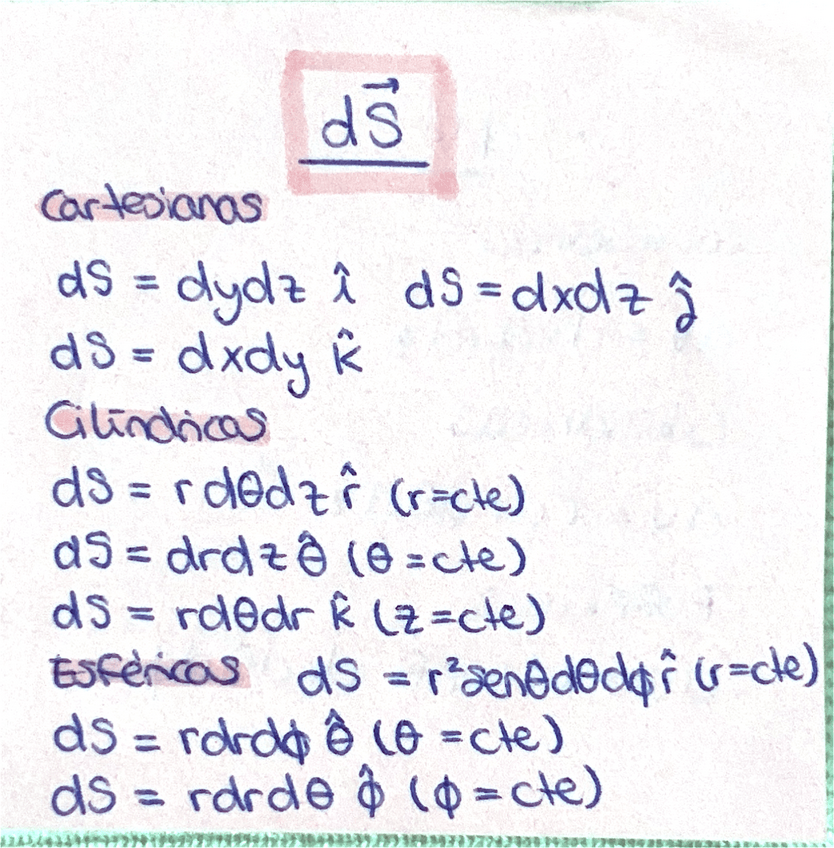 dS⃗
Cartesianas
dS = dydz î dS = dxdz ĵ
dS = dxdy k̂
Cilíndricas
dS = r dθdz r̂ (r=cte)
dS = drdz θ̂ (θ=cte)
dS = rdθdr k̂ (z=cte)
Esféricas dS = r²senθdθdϕ r̂ (r=cte)
dS = rdrdϕ θ̂ (θ=cte)
dS = rdrdθ ϕ̂ (ϕ=cte)